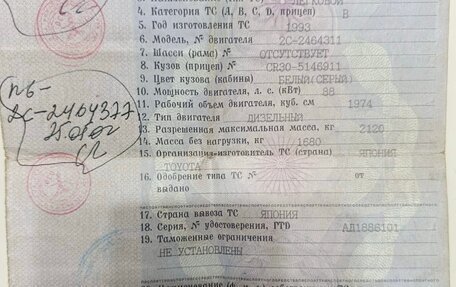 ЛЕГКОВОЙ
4. Категория ТС (А, В, С, D, прицеп) В
5. Год изготовления ТС 1993
6. Модель, № двигателя 2С-2464311
7. Шасси (рама) № ОТСУТСТВУЕТ
8. Кузов (прицеп) № CR30-5146911
9. Цвет кузова (кабины) БЕЛЫЙ(СЕРЫЙ)
10. Мощность двигателя, л. с. (кВт) 88
11. Рабочий объем двигателя, куб. см 1974
12. Тип двигателя ДИЗЕЛЬНЫЙ
13. Разрешенная максимальная масса, кг 2120
14. Масса без нагрузки, кг 1680
15. Организация-изготовитель ТС (страна) ЯПОНИЯ
TOYOTA
16. Одобрение типа ТС № от
выдано
17. Страна вывоза ТС ЯПОНИЯ
18. Серия, № удостоверения, ГТД АД1886101
19. Таможенные ограничения
НЕ УСТАНОВЛЕНЫ
2С-2464377